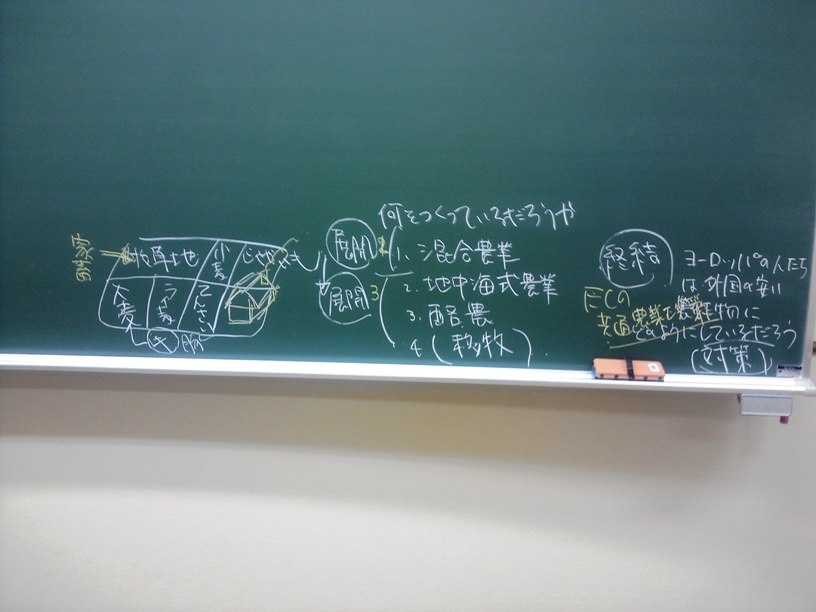 家畜
牧草地
小麦
じゃがいも
大麦
ライ麦
てんさい
展開2
展開3
何をつくっているだろうか
1. 混合農業
2. 地中海式農業
3. 酪農
4 (移牧)
終結
ヨーロッパの人たち
は外国の安い
農産物に
どのようにしているだろう
(対策)
ECの
共通農業政策